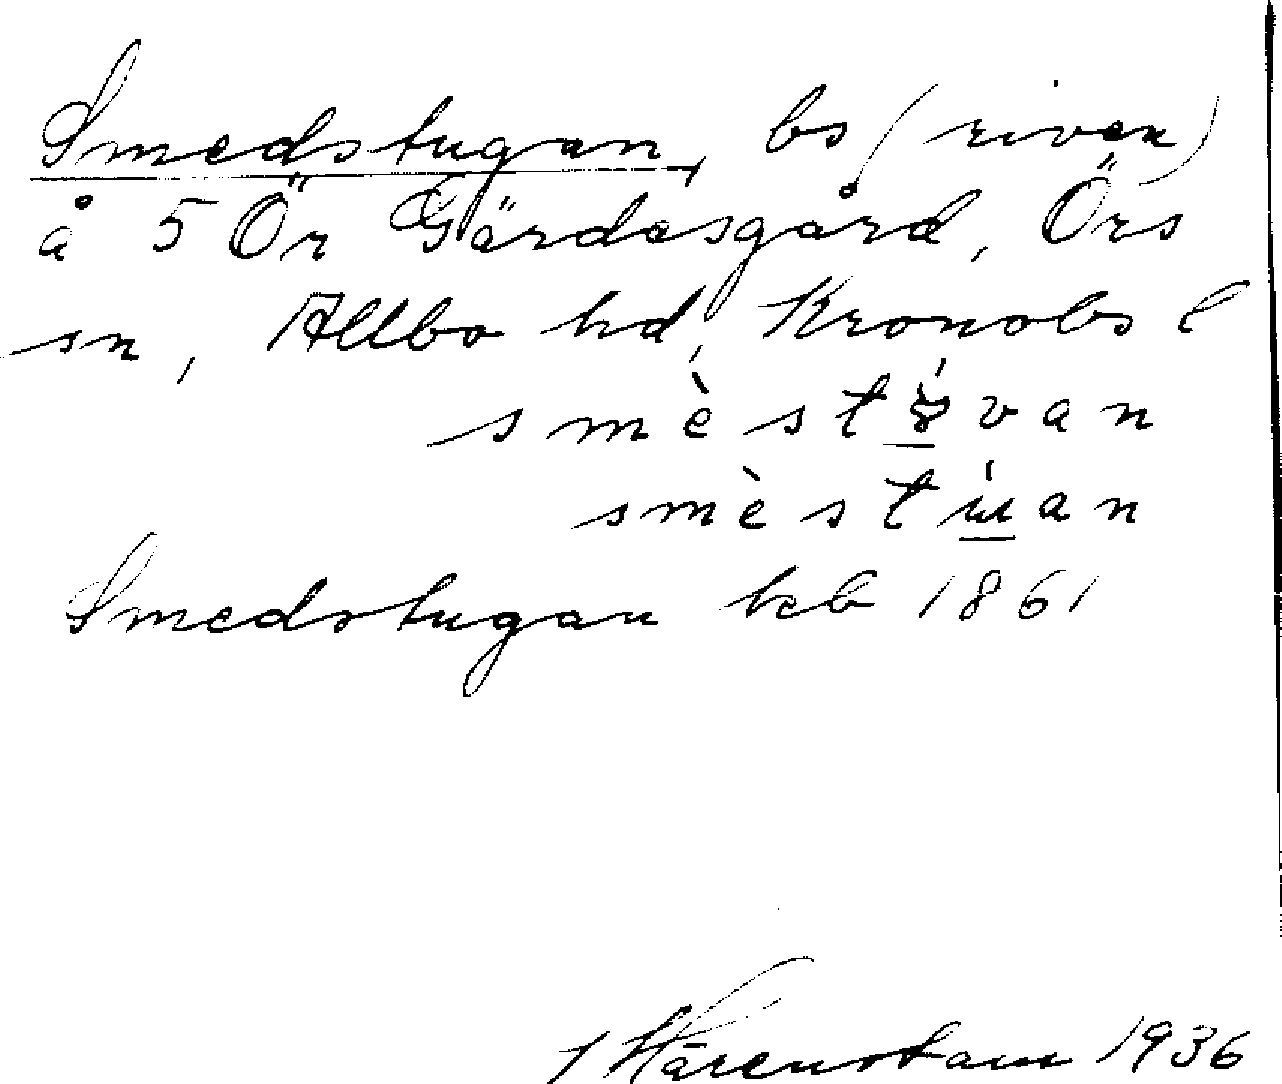 Smedstugan, bs (riven)
å 5 Ör Gärdesgård, Örs
sn, Allbo hd, Kronobs l
smèst van
smèst an
Smedstugan kb 1861
Härenstam 1936